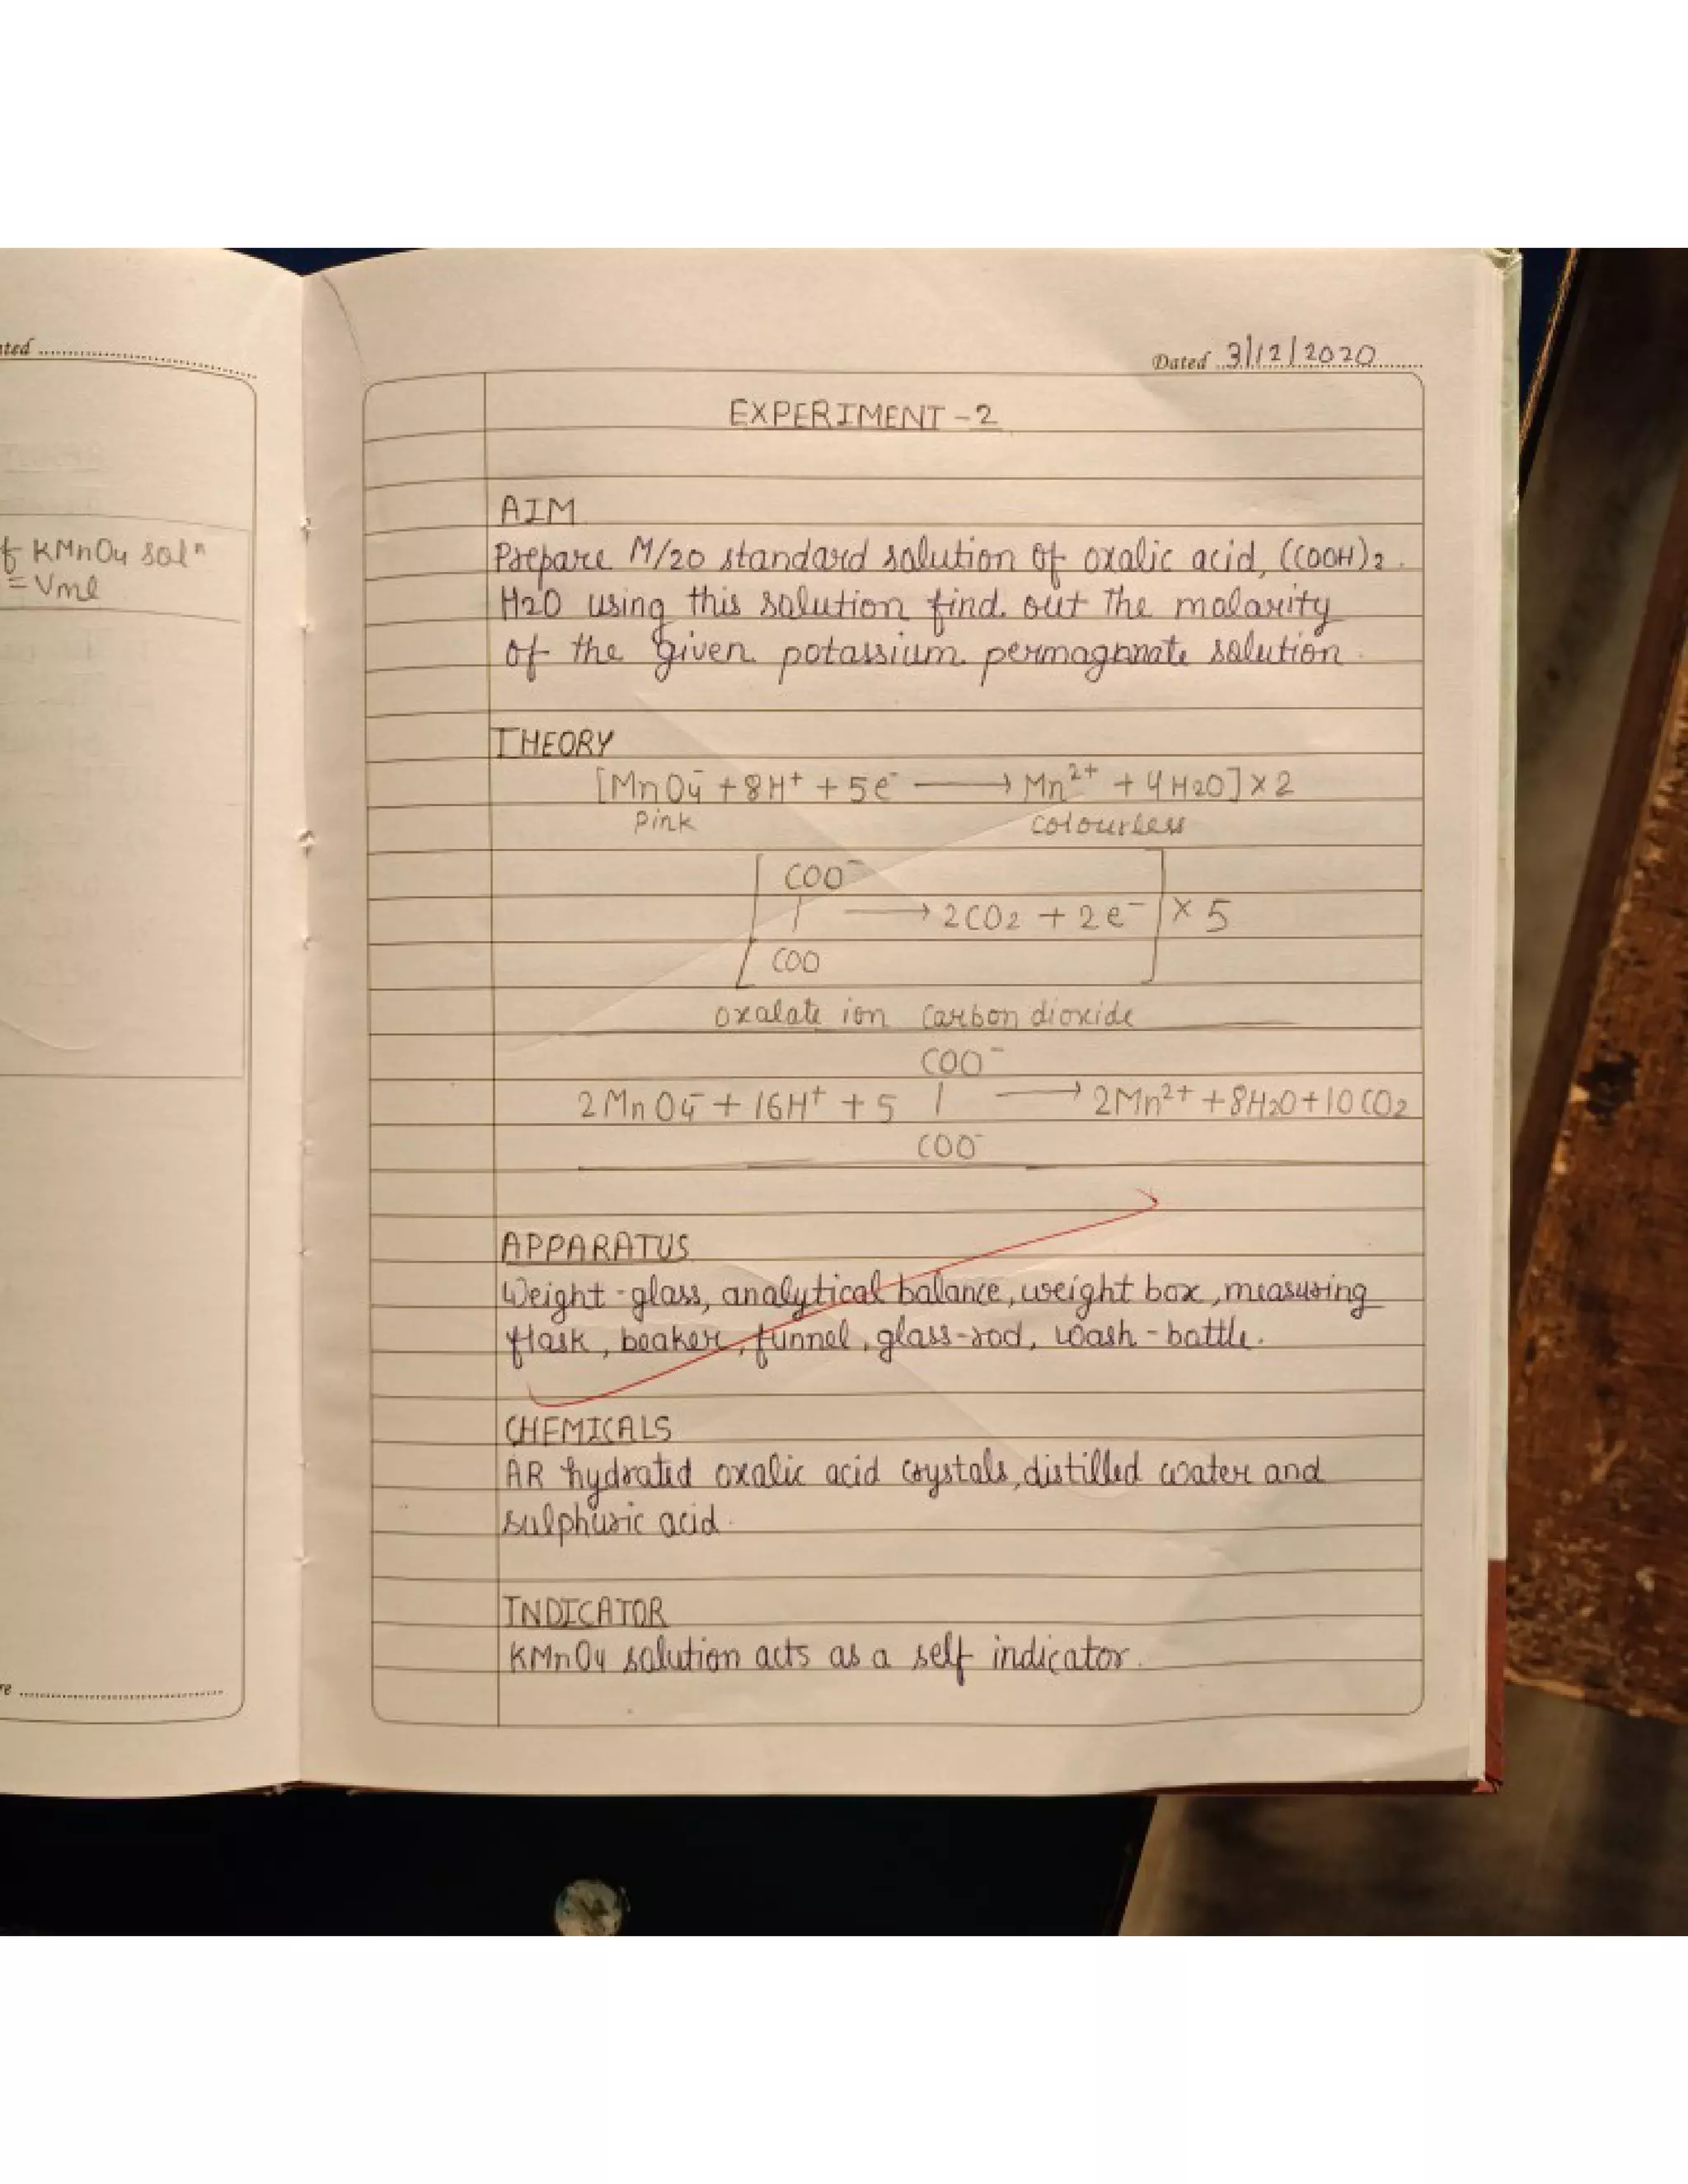 ated
f KMnO4 solⁿ
= Vml
re
Dated 3/12/2020
EXPERIMENT-2
AIM
Prepare M/20 standard solution of oxalic acid, (COOH)2.
H2O using this solution find. out The molarity
of the given potassium permagnnate solution.
THEORY
[MnO4⁻ + 8H⁺ + 5e⁻ ⟶ Mn²⁺ + 4H2O] x 2
pink colourless
COO⁻
| ⟶ 2CO2 + 2e⁻ x 5
COO
oxalate ion carbon dioxide
COO⁻
2MnO4⁻ + 16H⁺ + 5 | ⟶ 2Mn²⁺ + 8H2O + 10CO2
COO⁻
APPARATUS
Weight-glass, analytical balance, weight box, measuring
flask, beaker, funnel, glass-rod, wash-bottle.
CHEMICALS
AR hydrated oxalic acid crystals, distilled water and
sulphuric acid.
INDICATOR
KMnO4 solution acts as a self indicator.